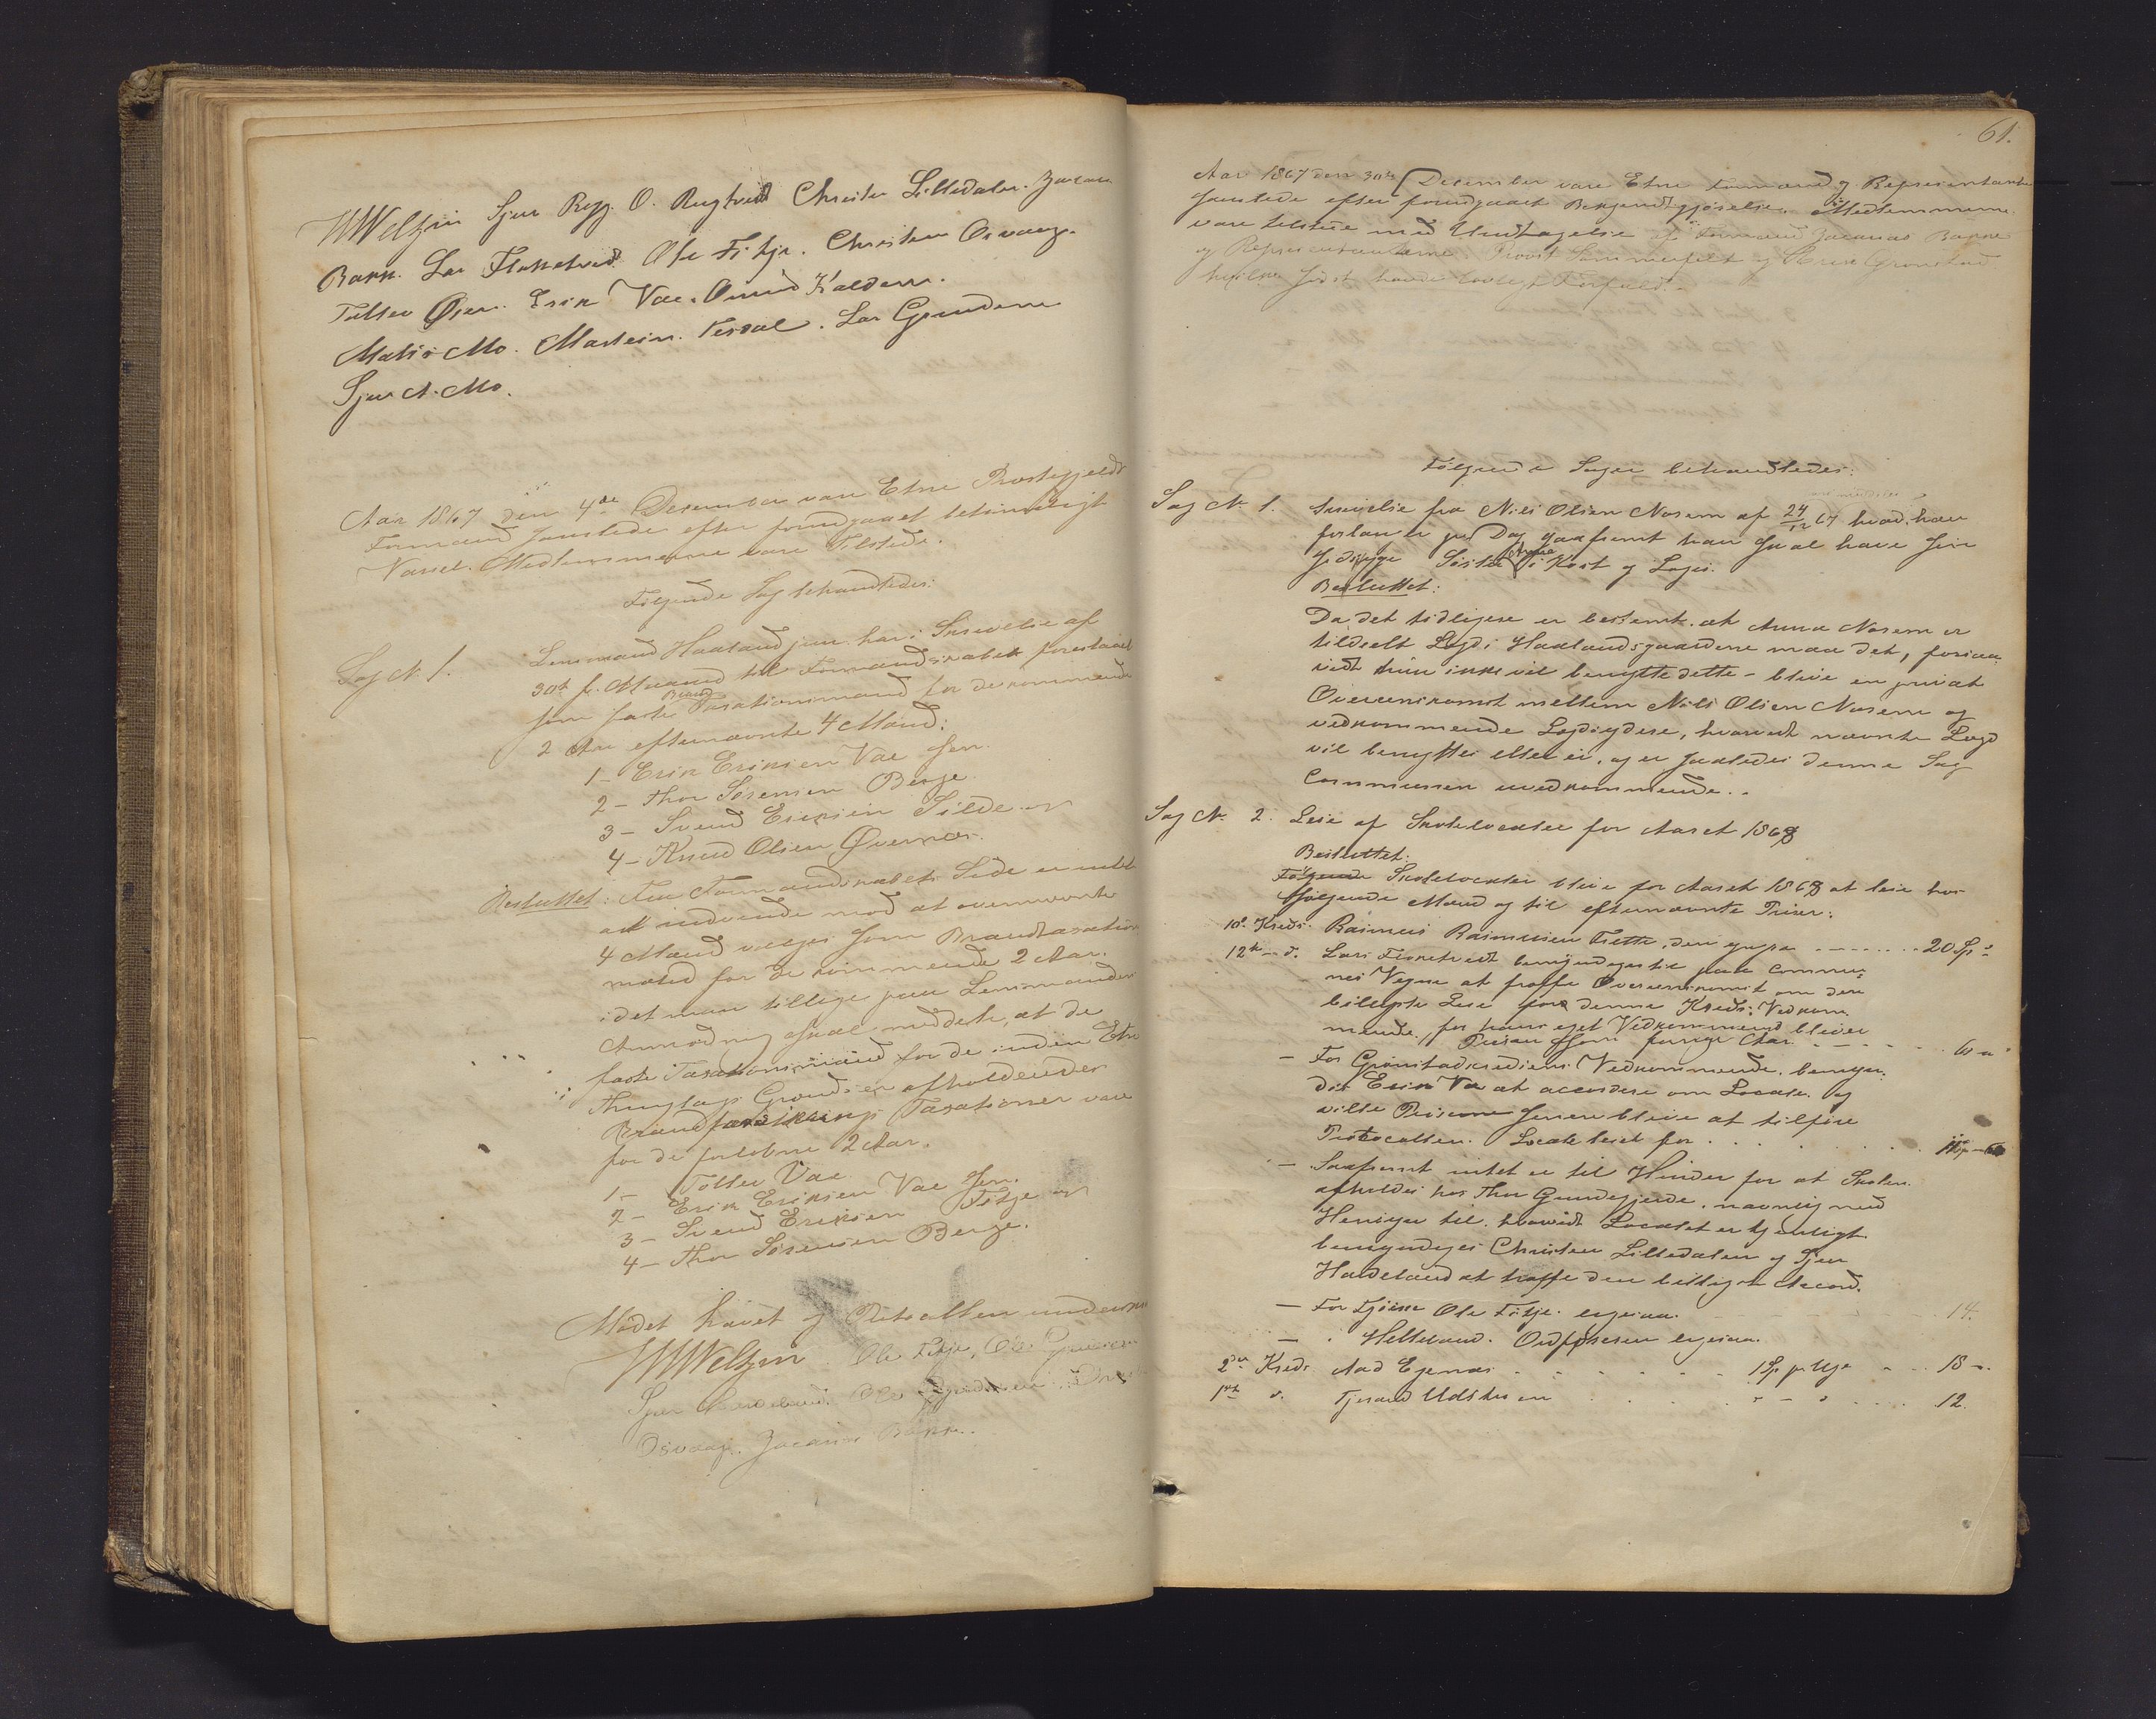 WWelzin Sjur Rygg. O. Rygtvedt Christen Lilledalen. Zacarias
Bakk. Lar Flokketved Ole Fitje. Christen Osvaag.
Tollev Øien. Erik Vae. Omund Kalden.
Matis Mo. Mastein. Tesdal. Lar Grinden
Sjur A. Mo.
Aar 1867 den 4de Desember vare Etne Præstegjelds
Formænd samlede efter forudgaaet betimeligt
Varsel. Medlemmerne vare Tilstede.
Følgende Sag behandledes:
Sag No 1. Lensmand Haaland jun. har i Skrivelse af
30te f. Maaned til Formandskabet foreslaaet
som faste Brand Taxationsmænd for de kommende
2 Aar efternævnte 4 Mænd:
1- Erik Eriksen Vae Sen.
2- Thor Sørensen Berge
3- Svend Eriksen Silde og
4- Knud Olsen Øvernæs.
Besluttet: Fra Formandskabets Side er intet
at indvende mod at ovennævnte
4 Mænd vælges som Brandtaxations
mænd for de kommende 2 Aar.
idet man tillige paa Lensmandens
Anmodning skal meddele, at de
faste Taxationsmænd for de inden Etne
Thinglags Grændser afholdende
Brandforsikrings Taxationer vare
for de forløbne 2 Aar.
1- Tollev Vae
2- Erik Eriksen Vae Sen.
3- Svend Eriksen Fitje og
4- Thor Sørensen Berge.
Mødet hævet og Protocollen underskr
WWelzin Ole Fitje, Ole
Sjur Haaeland. Ole
Osvaag. Zacarias Bakk.
61.
Aar 1867 den 30te December vare Etne Formænd og Representanter
samlede efter forudgaaet Bekjendtgjørelse. Medlemmerne
vare tilstede med Undtagelse af Formand Zacarias Bakke
og Representanterne Provst Sommerfelt og Erik Grønstad
hvilke sidst havde lovligt Forfald.
Følgende Sager behandledes:
Sag No 1. Skrivelse fra Nils Olsen Nosem af 24/12 67 hvad han
forlanger pr Dag saafremt han skal have sin
sidsyge Søster Anna i Kost og Logis.
Besluttet:
Da det tidligere er bestemt at Anna Nosem er
tildeelt Lægd i Haalandsgaardene maa det, forsaa
vidt hun ikke vil benytte dette - blive en privat
Overeenskomst mellem Nils Olsen Nosem og
vedkommende Lægdsydere, hvorvidt nævnte Lægd
vil benyttes eller ei, og er saaledes denne Sag
Communen uvedkommende.
Sag No 2: Leie af Skolelocaler for Aaret 1868
Besluttet:
Følgende Skolelocaler blive for Aaret 1868 at leie hos
følgende Mænd og til efternævnte Priser:
10de Kreds. Rasmus Rasmussen Frette, den yngre ....... 20 Sp
12te - d. Lars Flokketvedt bemyndiges til paa Commu-
nes Vegne at træffe Overeenskomst om den
billigste Leie for denne Kreds's Vedkom
mende, for hans eget Vedkommend bliver
Prisen som forrige Aar
- For Grønstadkredsens Vedkommende, bemyn-
diges Erik Vae at accordere om Locale. og
vilde Priserne senere blive at tilføre
Protocollen. Locale leiet for
- Saafremt intet er til Hinder for at Skolen
afholdes hos Thor Grindegjerde, navnlig med
Hensyn til, hvorvidt Localet er tjenligt
bemyndiges Christen Lilledalen og Sjur
Haaeland at træffe den billigste Accord.
- For Fjøsne Ole Fitje. ligesaa. 14.
- " Helleland. Ordføreren ligesaa.
2den Kreds. Aad Egenæs . . . . 1 Sp pr Uge - .. 18 -.
1ste d. Tjerand Udskusen . . . " - " .... 12.